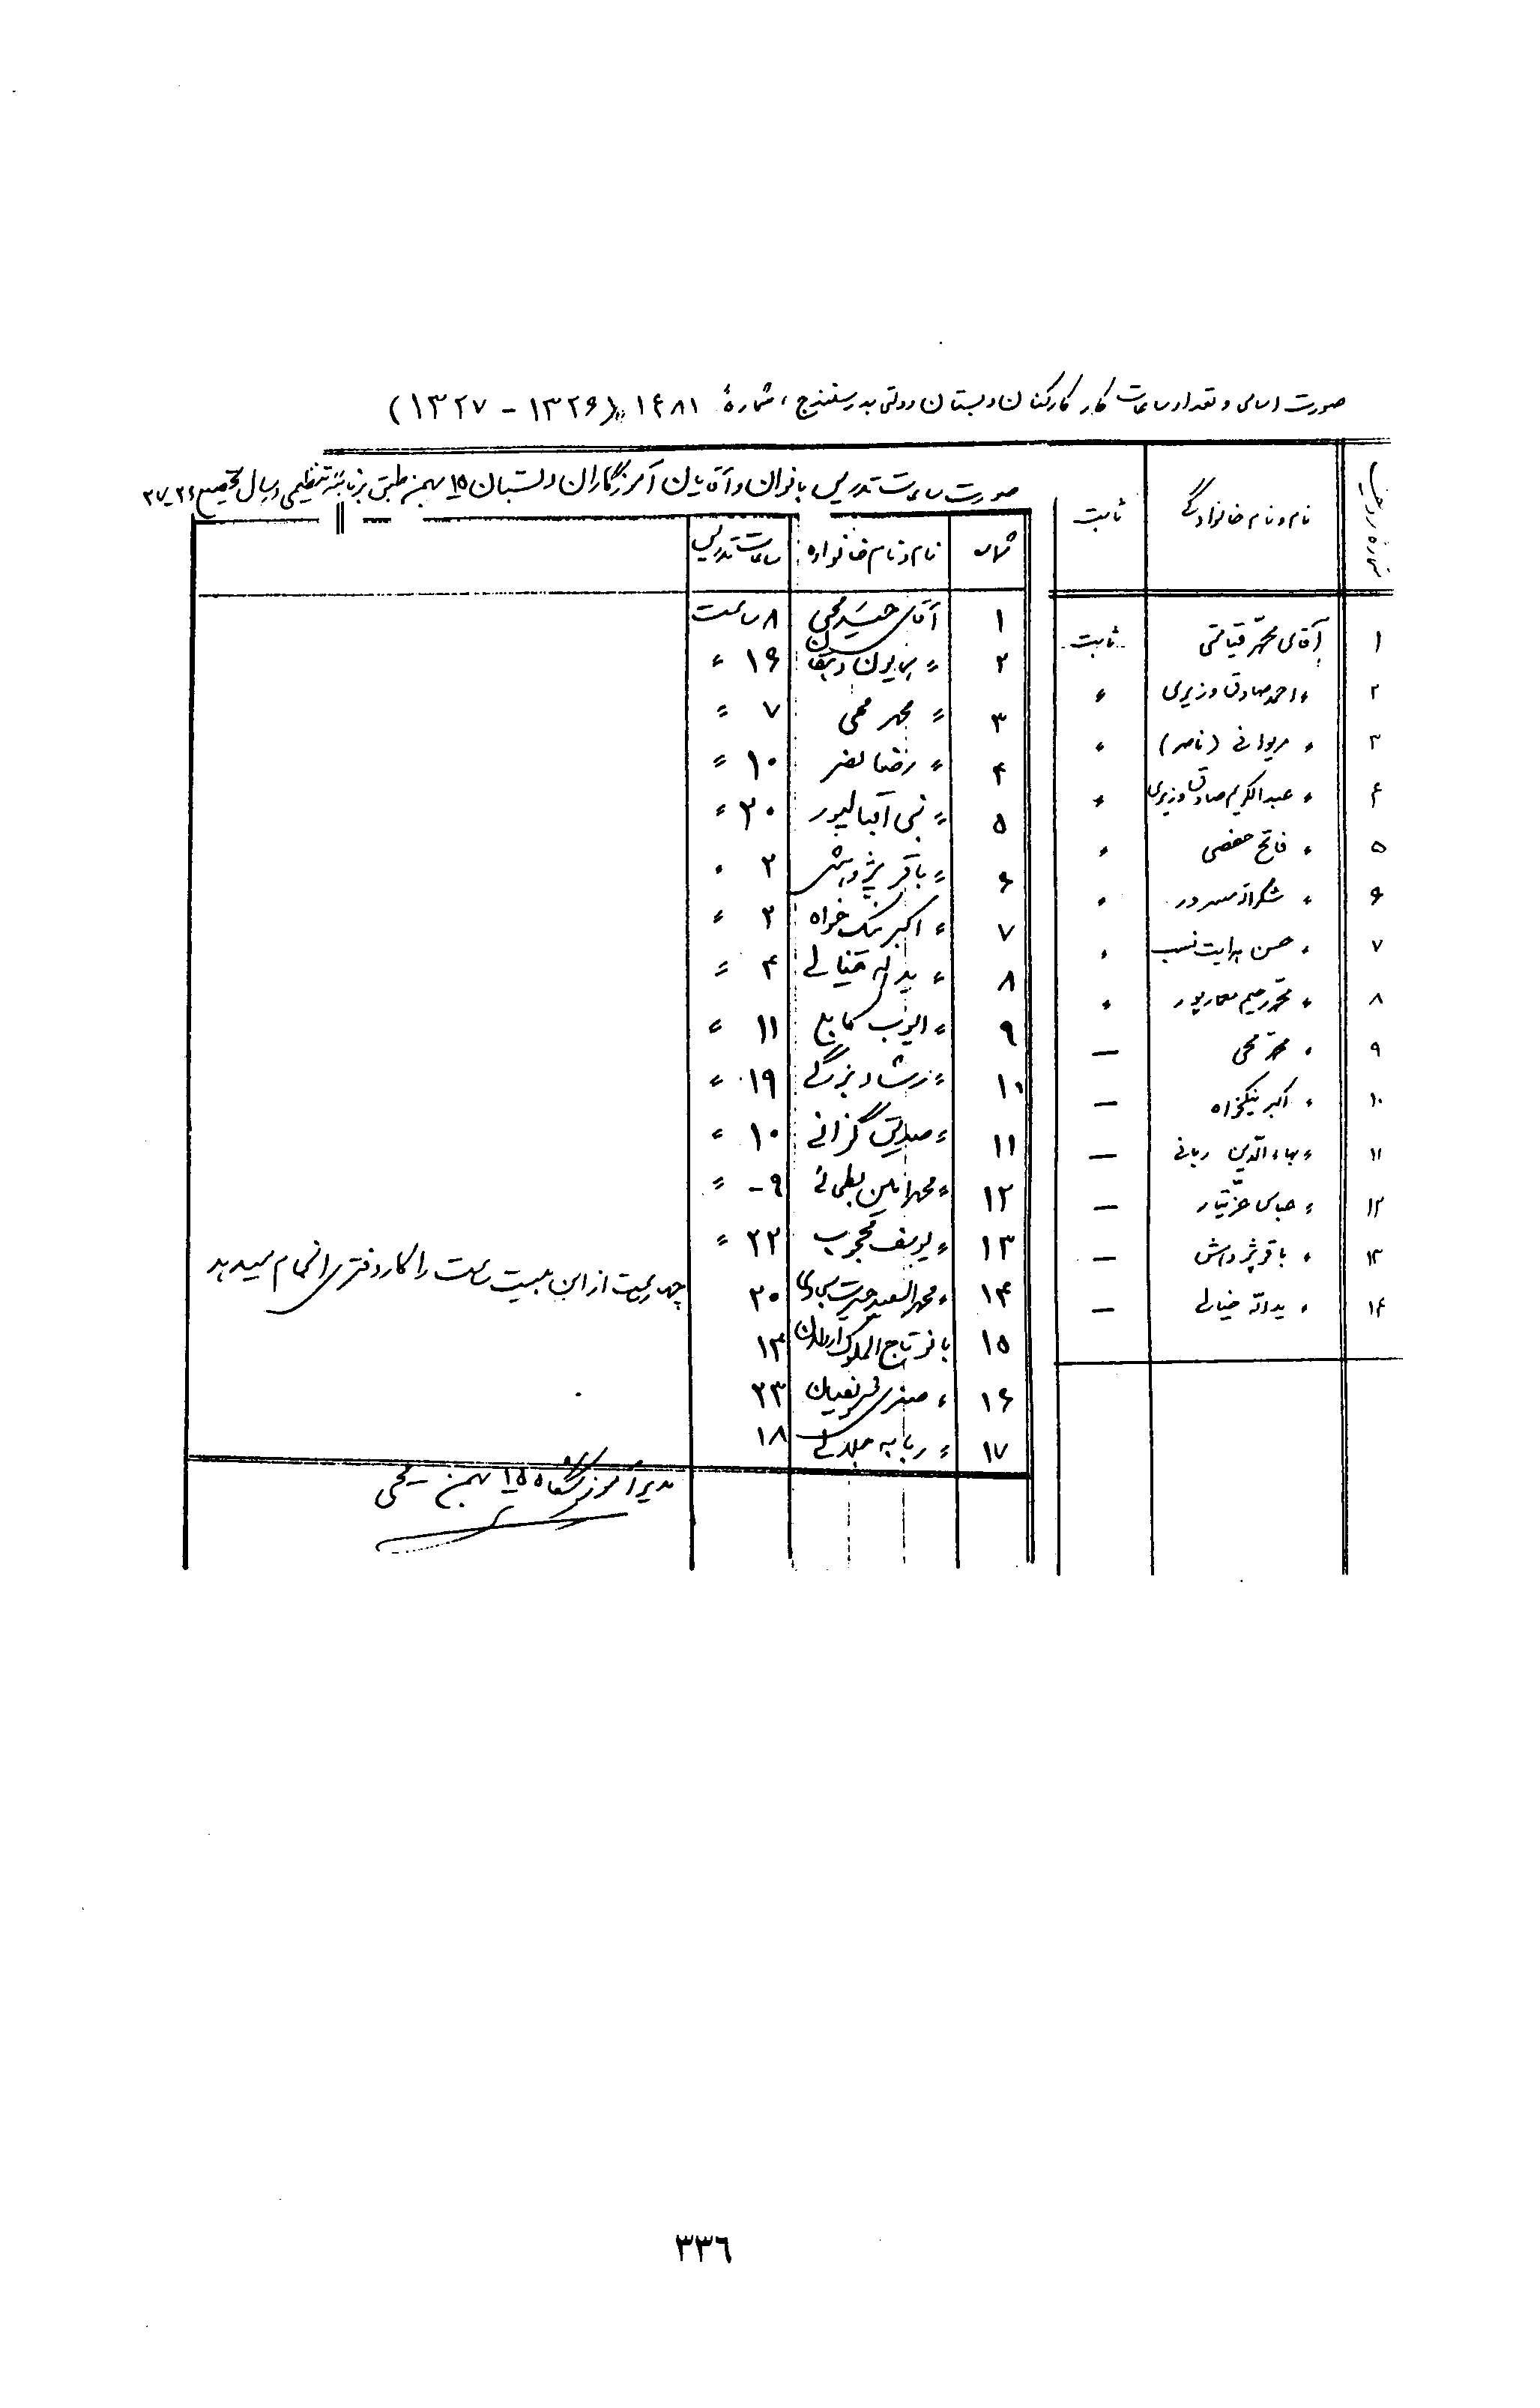 صورت اسامی و تعداد ساعات کار کارکنان دبستان دولتی بدر سنندج، شمارهٔ ۱۴۸۱ (۱۳۲۶ - ۱۳۲۷)
شماره ردیف نام و نام خانوادگی ثابت
۱ آقای محمّد قیامتی ثابت
۲ " احمد صادق وزیری "
۳ " مریوانی (ناصر) "
۴ " عبدالکریم صادق وزیری "
۵ " فاتح حفصی "
۶ " شکراله سرور "
۷ " حسن هدایت نسب "
۸ " محمّد رحیم معمارپور "
۹ " محمّد محی —
۱۰ " اکبر نیکخواه —
۱۱ " بهاءالدّین ربانی —
۱۲ " عباس —
۱۳ " باقر پژوهش —
۱۴ " یداله خیالی —
صورت ساعات تدریس بانوان و آقایان آموزگاران دبستان ۱۵ بهمن طبق برنامه تنظیمی در سال تحصیلی ۲۶-۲۷
شماره نام و نام خانواده ساعات تدریس
۱ آقای سید محی ۸ ساعت
۲ " همایون ۱۶ "
۳ " محمد محی ۷ "
۴ " رضا ۱۰ "
۵ " نبی اقبالپور ۳۰ "
۶ " باقر پژوهش ۲ "
۷ " اکبر نیک خواه ۲ "
۸ " یداله خیالی ۴ "
۹ " ایوب ۱۱ "
۱۰ " رشاد بزرگی ۱۹ "
۱۱ " صدیق گزانی ۱۰ "
۱۲ " محمد امین ۹- "
۱۳ " یوسف محجوب ۲۲ "
۱۴ " محمد السعید حیرت سجادی ۲۰ چهار ساعت از این بیست ساعت را کار دفتری انجام میدهد
۱۵ بانو تاج الملوک اردلان ۱۳
۱۶ " صغری ۲۳
۱۷ " ربابه ۱۸
مدیر آموزشگاه ۱۵ بهمن - محی
۳۳٦